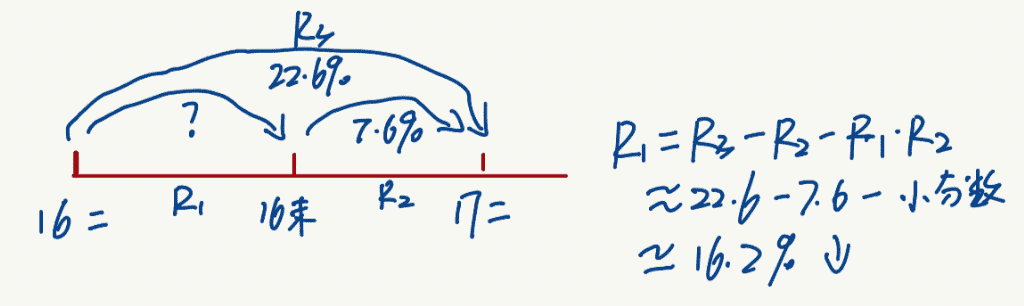 R₃
22.6%
? 7.6%
R₁ R₂
16= 16末 17=
R₁=R₃-R₂-R₁·R₂
≈22.6-7.6-小分数
≈16.2%↓